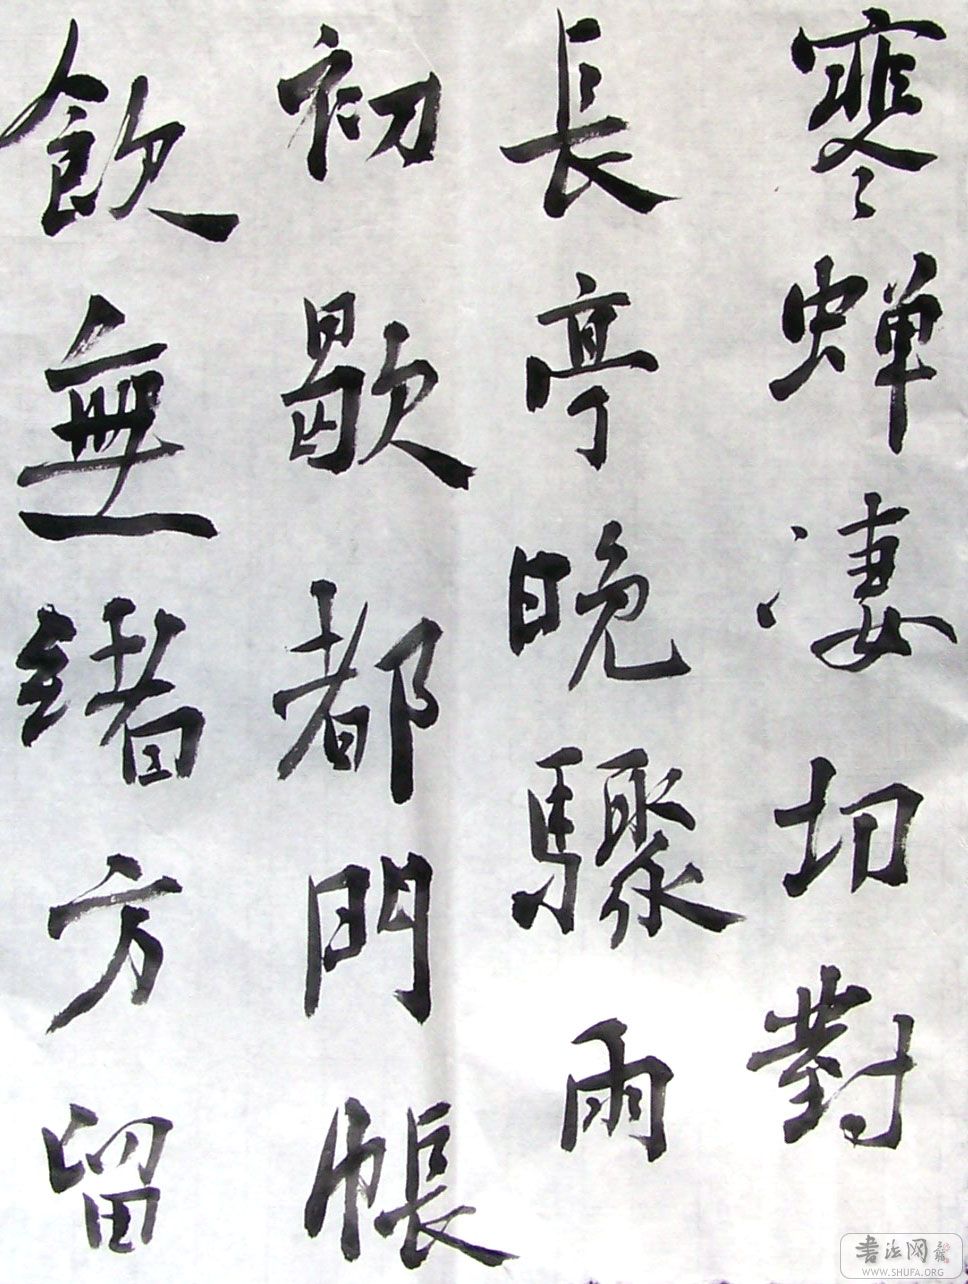 寒蝉凄切對
長亭晚驟雨
初歇都門帳
飲無緒方留
書法网
WWW.SHUFA.ORG